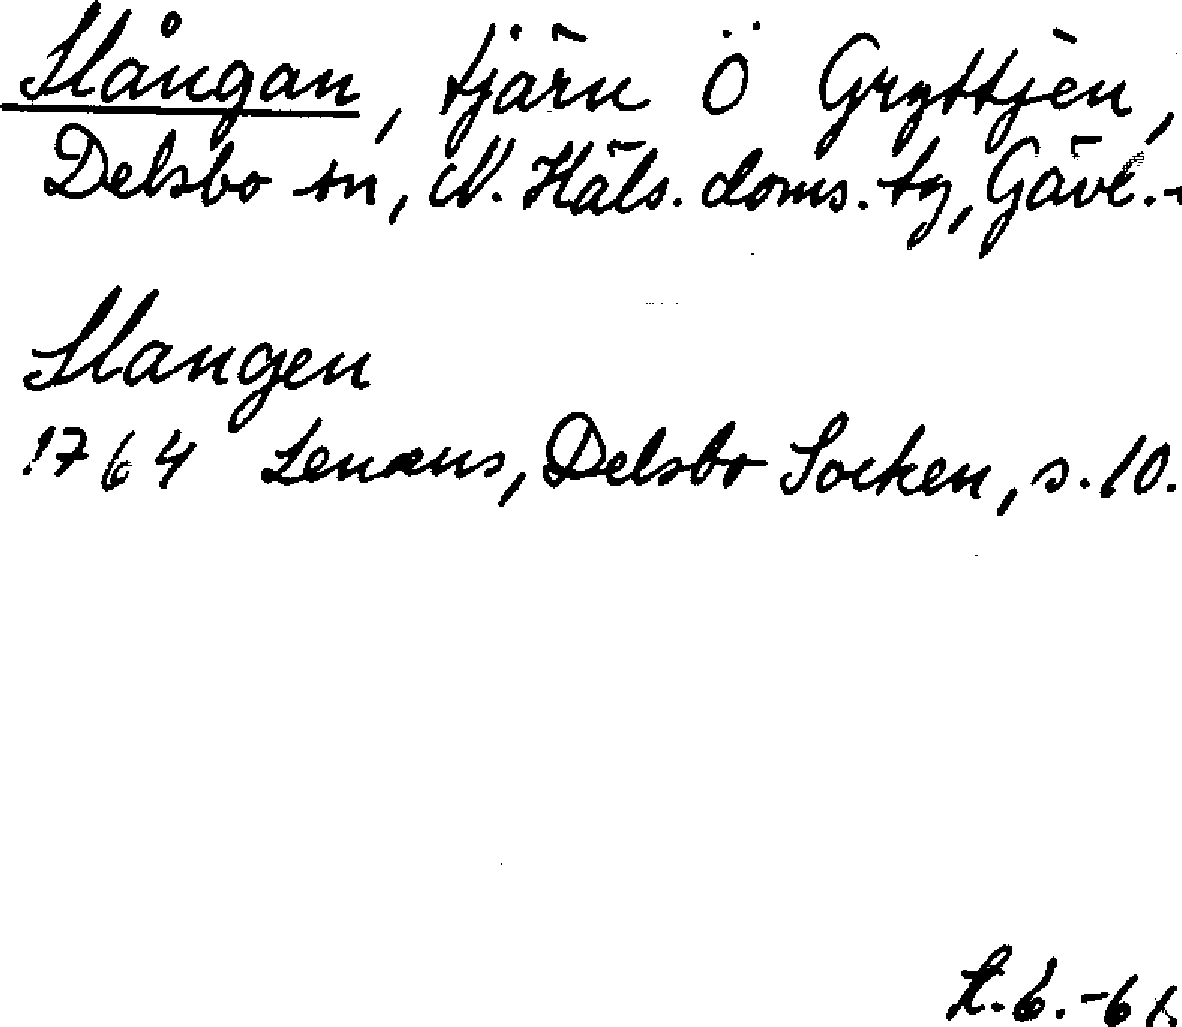 Slångan, tjärn Ö Gryttjen,
Delsbo sn, N. Häls. doms. tg, Gävl.-
Slangen
1764 Lenæus, Delsbo Socken, s. 10.